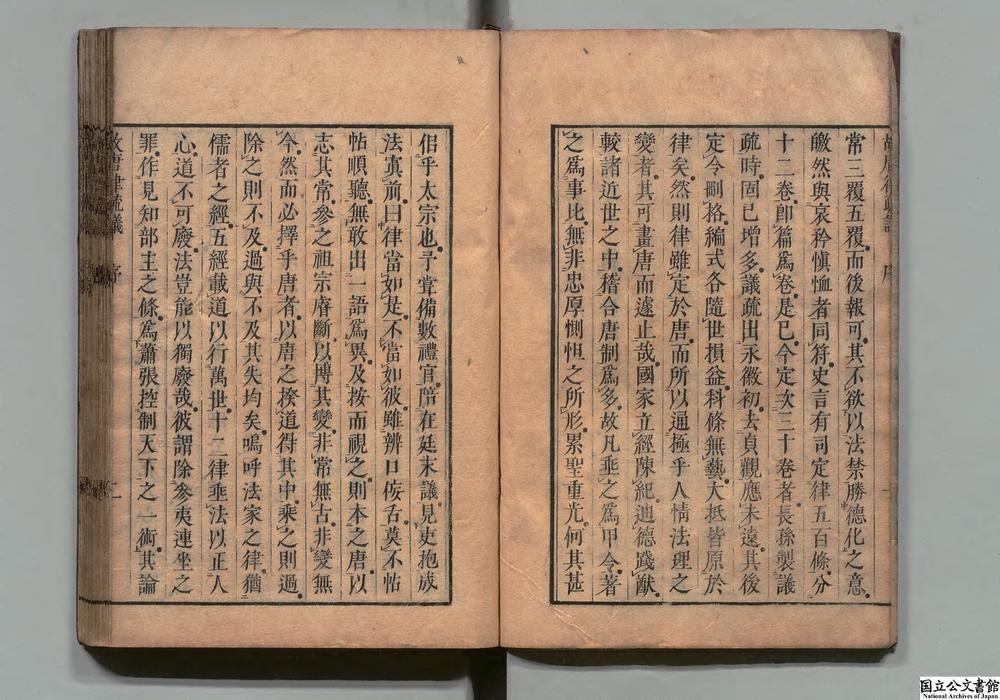 常三覆五覆而後報可其不欲以法禁勝德化之意
皦然與哀矜愼恤者同符史言有司定律五百條分
十二卷卽篇爲卷是已今定次三十卷者長孫製議
疏時固已增多議疏出永徽初去貞觀應未遠其後
定令刪格編式各隨世損益科條無藝大抵皆原於
律矣然則律雖定於唐而所以通極乎人情法理之
變者其可畫唐而遽止哉國家立經陳紀迪德踐猷
較諸近世之中稽合唐制爲多故凡垂之爲甲令著
之爲事比無非忠厚惻怛之所形累聖重光何其甚
侣乎太宗也予嘗備數禮官陪在廷末議見吏抱成
法寘前曰律當如是不當如彼雖辨口佞舌莫不帖
帖順聽無敢出一語爲異及按而視之則本之唐以
志其常參之祖宗睿斷以博其變非常無古非變無
今然而必擇乎唐者以唐之揆道得其中乘之則過
除之則不及過與不及其失均矣嗚呼法家之律猶
儒者之經五經載道以行萬世十二律垂法以正人
心道不可廢法豈能以獨廢哉彼謂除參夷連坐之
罪作見知部主之條爲蕭張控制天下之一術其論
故唐律疏議 序 二
国立公文書館
National Archives of Japan